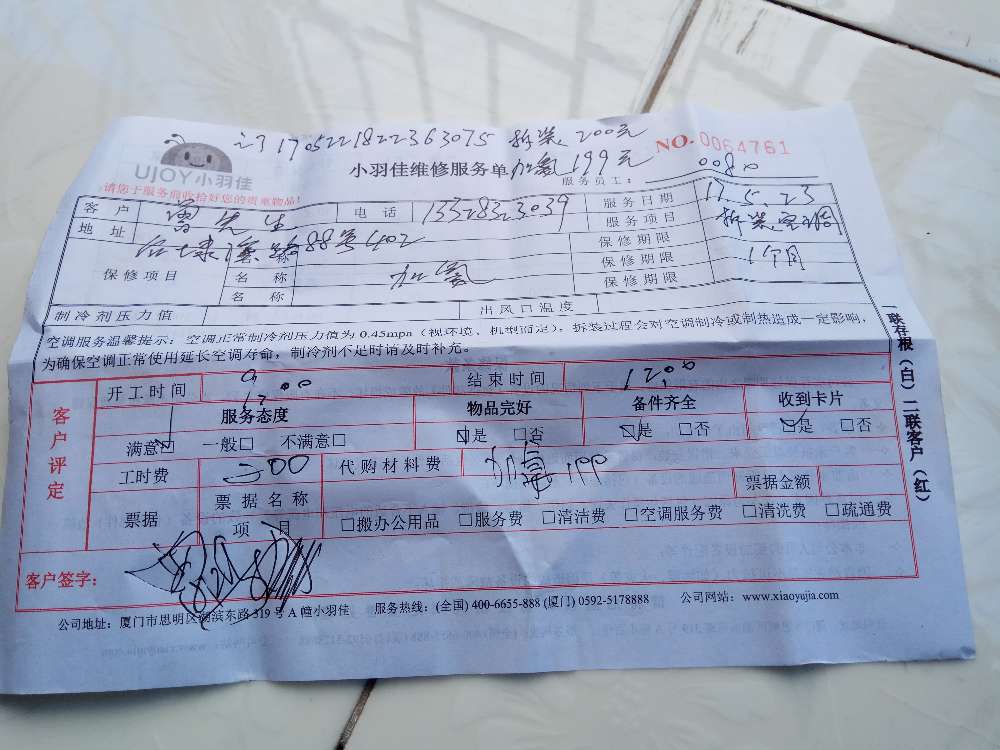 订 1705221822363075 拆装 200元
UJOY小羽佳
小羽佳维修服务单 加氟 199元
NO.0064761
请您于服务前收拾好您的贵重物品!
服务员工: 0080
客户 雷先生 电话 服务日期 17.5.23
地址 88号402 服务项目 拆装空调
保修项目 名称 保修期限
名称 加氟 保修期限 1个月
名称 保修期限
制冷剂压力值 出风口温度
空调服务温馨提示:空调正常制冷剂压力值为 0.45mpa(视环境、机型而定),拆装过程会对空调制冷或制热造成一定影响,
为确保空调正常使用延长空调寿命,制冷剂不足时请及时补充。
一联存根(白)二联客户(红)
客户评定
开工时间 9:00 结束时间 12:00
服务态度 物品完好 备件齐全 收到卡片
满意☑ 一般□ 不满意□ ☑是 □否 ☑是 □否 ☑是 □否
工时费 二00 代购材料费 加氟 199
票据 票据名称 票据金额
项目 □搬办公用品 □服务费 □清洁费 □空调服务费 □清洗费 □疏通费
客户签字:
公司地址:厦门市思明区湖滨东路 319 号 A 幢小羽佳 服务热线:(全国) 400-6655-888 (厦门) 0592-5178888 公司网站:www.xiaoyujia.com